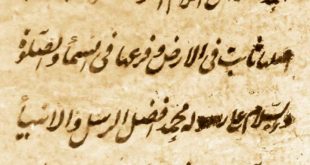 اصلها ثابت فى الارض و فرعها فى السمأ والصلوة
والسلام على رسوله محمد افضل الرسل والانبيأ